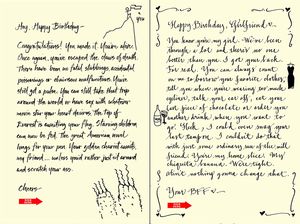 Hey, Happy Birthday—
Congratulations! You made it. You're alive.
Once again, you've escaped the claws of death.
There have been no fatal stabbings, accidental
poisonings or chainsaw malfunctions. You've
still got a pulse. You can still take that trip
around the world or have sex with
your heart desires. The Top of
Everest is awaiting your flag. Starving children
can now be fed. The great American novel
longs for your pen. Your golden chariot awaits,
my friend... unless you'd rather just sit around
and scratch your ass.
Cheers—
Happy Birthday, Girlfriend
You know you're my girl. We've been
through a lot and there's no one
better than you. I got your back.
For real. You can always count
on me to borrow your favorite clothes,
tell you when you're wearing too much
eyeliner, talk you out of, eat you
last piece of chocolate or order you
another drink when you want to
go! Heck, I could even snag your
last tampon. I couldn't do that
with just some ordinary run of the mill
friend. You're my home slice! My
chiquita banana. We're tight.
ain't nothing gonna change that.
Your BFF